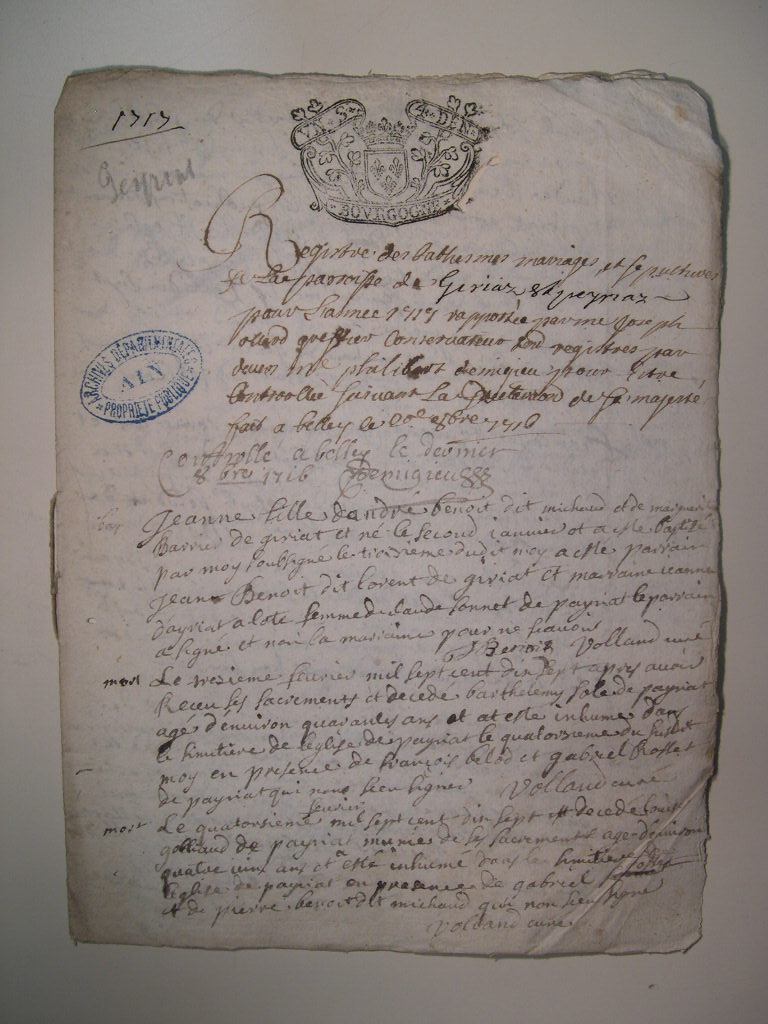 1717
VN. S. 4. DEN.
BOVRGOGNE
Geyriat
ARCHIVES DÉPARTEMENTALES
AIN
PROPRIÉTÉ PUBLIQUE
Registre des bathesmes mariages et sepultures
de la paroisse de Geriaz & peyriaz
pour l'année 1717 rapportée par me Joseph
greffier Conservateur des registres par
devers me philibert demigieu pour être
Controllée suivant La de sa majesté
fait a belley le 8bre 1716
Controllé a belley le dernier
8bre 1716 Demigieu
bap Jeanne fille dandré benoit dit michaud et de marguerite
Barrier de giriat et né le second janvier et a este baptisé
par moy soubsigné le troisieme dudit moy a esté parrain
Jean Benoit dit lorent de giriat et marraine jeanne
femme de claude sonnet de payriat le parrain
a signé et non la marraine pour ne scavoir
J Benoit Volland curé
mort Le tresieme fevrier mil sept cent din sept apres avoir
Receu ses sacrements et decede barthelemy sole de payriat
agé d'environ quarante ans et at esté inhumé dans
le simitiere de leglise de payriat le quatorsieme du susdit
moy en presence de françois belod et gabriel
de payriat qui nont sceu signer Volland curé
fevrier
mort Le quatorsieme mil sept cent din sept est decede
golliaud de payriat munie de ses sacrements agé denviron
quatre vint ans et a esté inhumé dans le simitiere
leglise de payriat en presence de gabriel
et de pierre benoit dit michaud qui non sceu signé
Volland curé